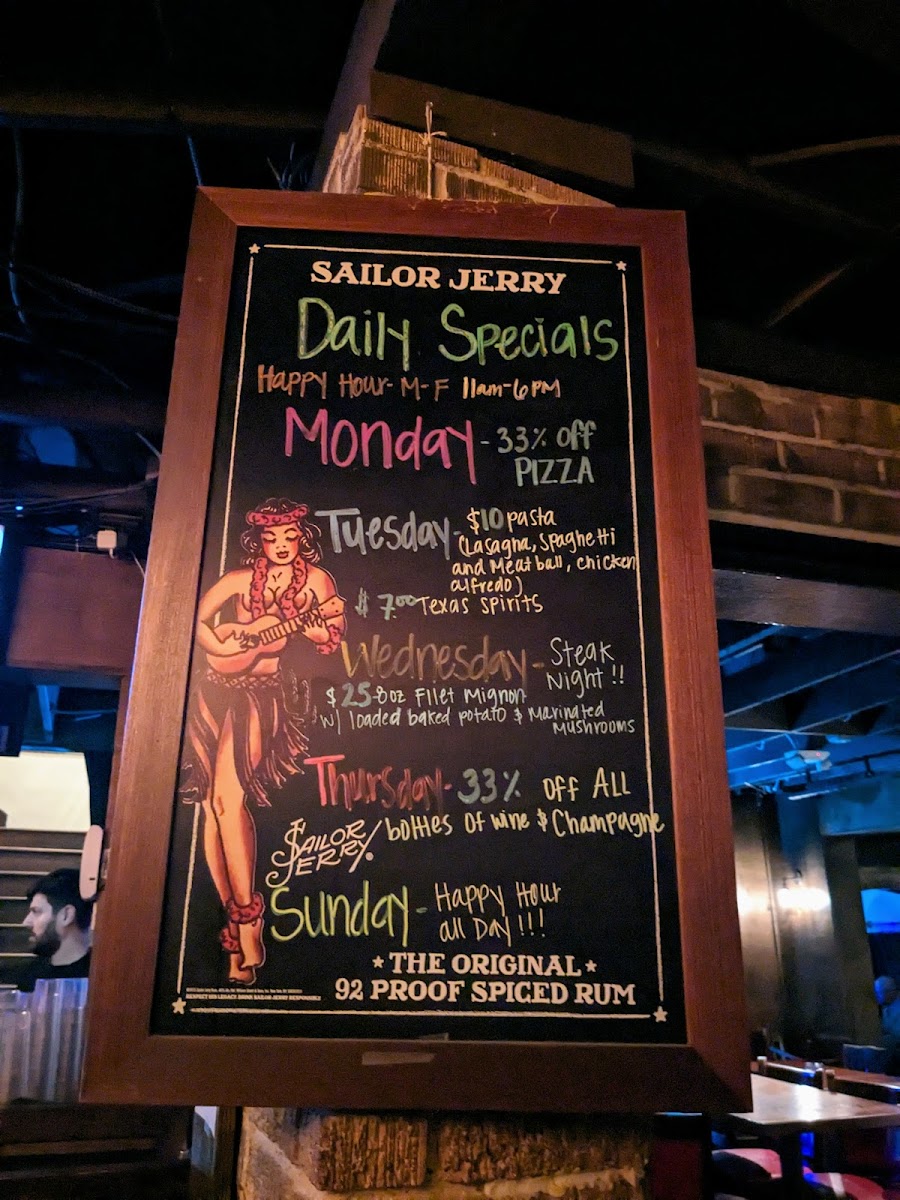 SAILOR JERRY
Daily Specials
Happy Hour- M-F 11am-6PM
Monday - 33% off
PIZZA
Tuesday - $10 pasta
(Lasagna, spaghetti
and meat ball, chicken
alfredo)
$7.00 Texas spirits
Wednesday - Steak
Night!!
$25 - 8oz Filet Mignon
w/ loaded baked potato & Marinated
Mushrooms
Thursday - 33% off All
bottles of wine & Champagne
SAILOR
JERRY®
Sunday - Happy Hour
all Day!!!
THE ORIGINAL
92 PROOF SPICED RUM
RESPECT HIS LEGACY. DRINK SAILOR JERRY RESPONSIBLY.